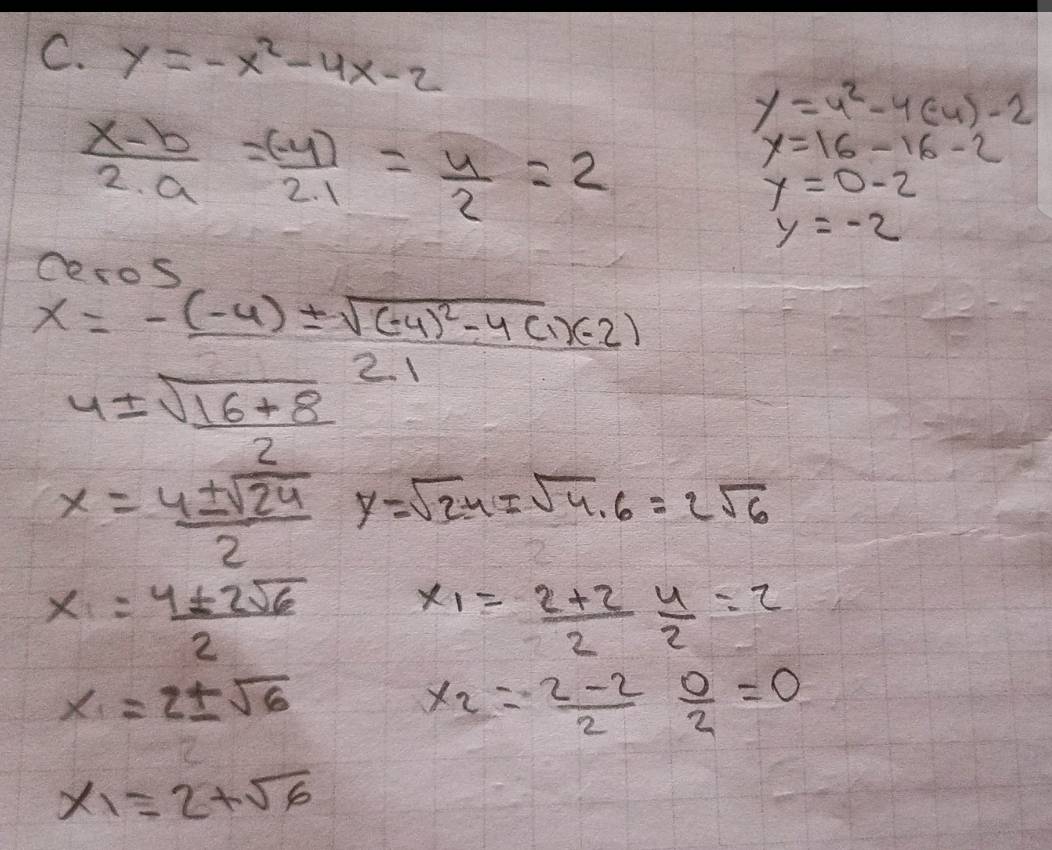 C. y = -x² - 4x - 2
x-b/2.a = (-4)/2.1 = 4/2 = 2
y = 4² - 4(-4) - 2
y = 16 - 16 - 2
y = 0 - 2
y = -2
Ceros
x = -(-4) ± √(-4)² - 4(1)(-2) / 2.1
4 ± √16 + 8 / 2
x = 4 ± √24 / 2 y = √24 = √4.6 = 2√6
x₁ = 4 ± 2√6 / 2
x₁ = 2 ± √6
x₁ = 2 + √6
x₁ = 2+2/2 4/2 = 2
x₂ = 2-2/2 0/2 = 0